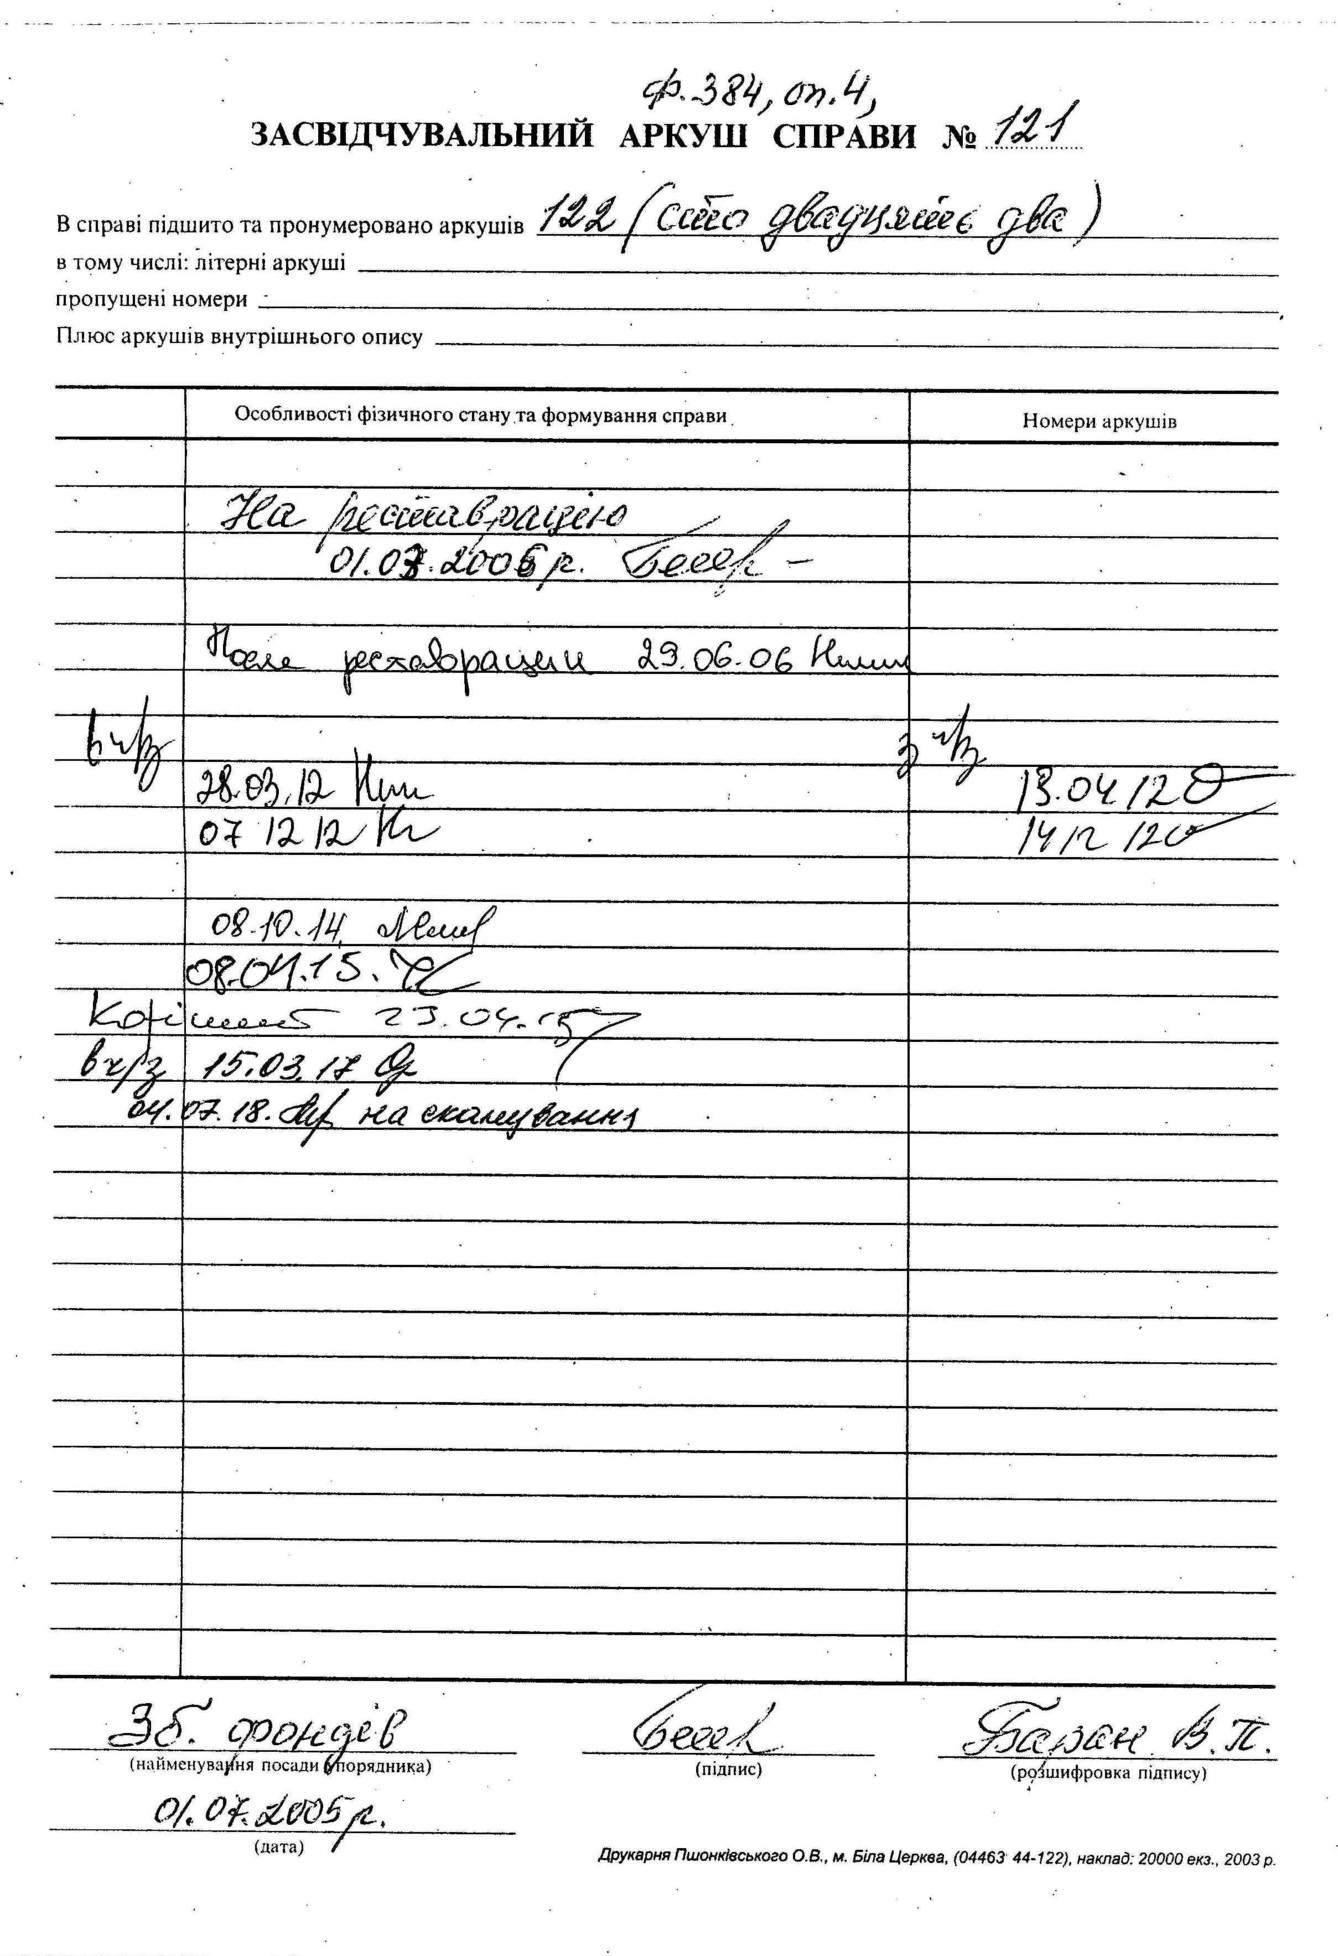 ф. 384, оп. 4,
ЗАСВІДЧУВАЛЬНИЙ АРКУШ СПРАВИ № 121
В справі підшито та пронумеровано аркушів 122 (сто двадцять два)
в тому числі: літерні аркуші
пропущені номери
Плюс аркушів внутрішнього опису
Особливості фізичного стану та формування справи
Номери аркушів
На реставрацію
01.03.2006 р.
После реставрации 29.06.06
в ч/з
з ч/з
28.03.12
13.04 12
07 12 12
14 12 12
08.10.14
08.04.15.
23.04.15
в ч/з 15.03.17
04.07.18. на сканування
Зб. фондів
Баран В.П.
(найменування посади упорядника)
(підпис)
(розшифровка підпису)
01.07.2005 р.
(дата)
Друкарня Пшонківського О.В., м. Біла Церква, (04463 44-122), наклад: 20000 екз., 2003 р.